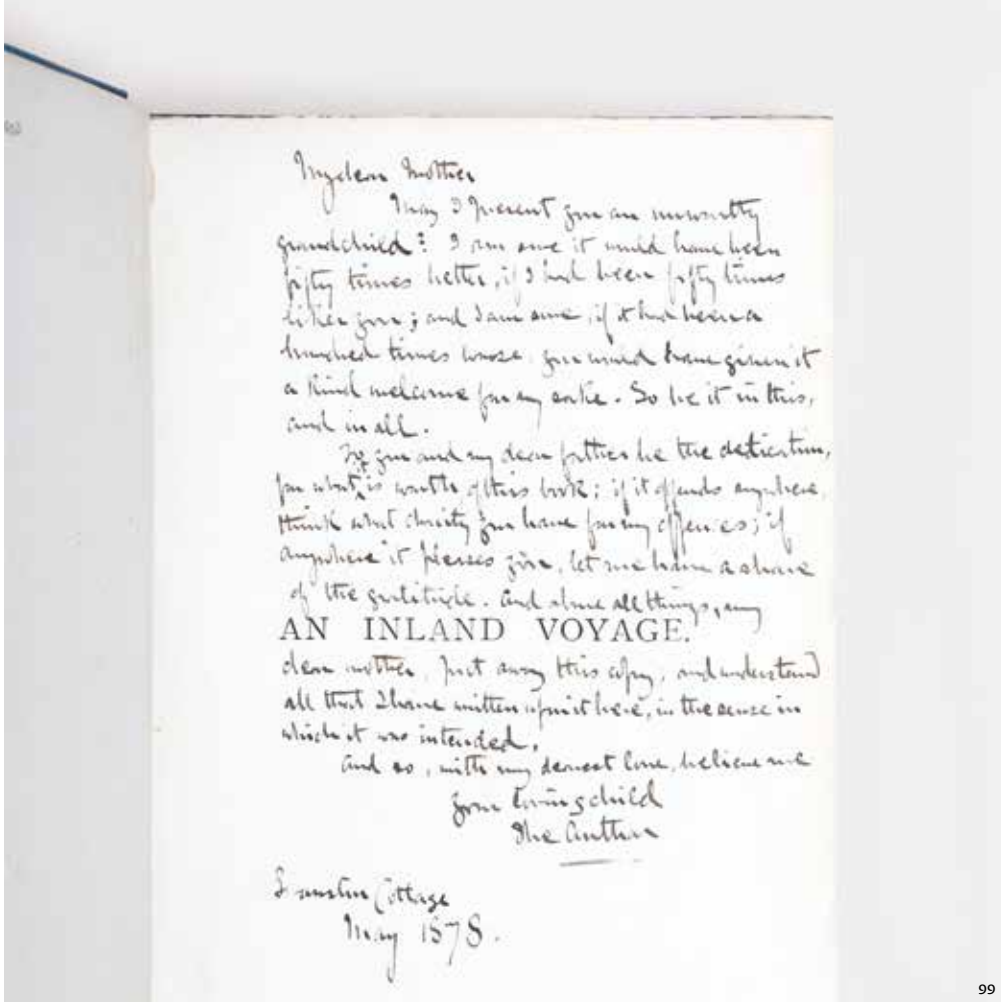 My dear Mother
May I present you an unworthy
grandchild? I am sure it would have been
fifty times better, if I had been fifty times
liker you; and I am sure, if it had been a
hundred times worse, you would have given it
a kind welcome for my sake. So be it in this,
and in all.
To you and my dear father be the dedication,
for what is worth of this book; if it offends anywhere,
think what charity you have for my offences; if
anywhere it pleases you, let me have a share
of the gratitude. And above all things, my
AN INLAND VOYAGE.
dear mother, put away this copy, and understand
all that I have written upon it here, in the sense in
which it was intended.
And so, with my dearest love, believe me
your loving child
The Author
Swanston Cottage
May 1878.
99